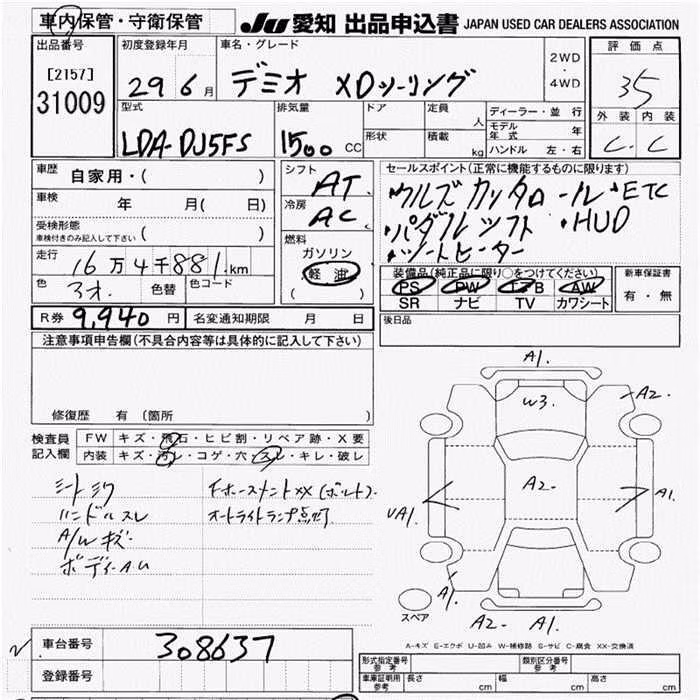 車内保管・守衛保管
JU 愛知 出品申込書 JAPAN USED CAR DEALERS ASSOCIATION
出品番号
[2157]
31009
初度登録年月
29 6 月
車名・グレード
デミオ XDツーリング
2WD
・
4WD
評価点
35
外装 内装
C . C
型式
LDA-DJ5FS
排気量
1500 CC
ドア
形状
定員 人
積載 kg
ディーラー・並行
モデル年式 年
ハンドル 左・右
車歴
自家用・( )
車検
年 月( 日)
受検形態
車検付きのみ記入して下さい ( )
走行
16万4千881km
色
アオ.
色替
色コード
シフト
AT.
冷房
AC.
燃料
ガソリン
軽油
( )
セールスポイント(正常に機能するものに限ります)
・パドルシフト ・HUD
・シートヒーター
装備品(純正品に限り○をつけてください)
PS PW エアB AW
SR ナビ TV カワシート
新車保証書
有・無
R券 9,940 円
名変通知期限 月 日
後日品
注意事項申告欄(不具合内容等は具体的に記入して下さい)
修復歴 有(箇所 )
検査員
記入欄
FW キズ・飛石・ヒビ割・リペア跡・X要
内装 キズ・汚レ・コゲ・穴・スレ・キレ・破レ
ハンドルスレ
オートライトランプ点灯
A/Wキズ
A1.
W3.
A2.
A2-
UA1.
A1.
A1.
A2- A1.
スペア
A-キズ E-エクボ U-凹み W-補修跡 S-サビ C-腐食 XX-交換済
車台番号
308637
登録番号
形式指定番号
参考
類別区分番号
参考
車庫証明用
参考
長さ cm
幅 cm
高さ cm